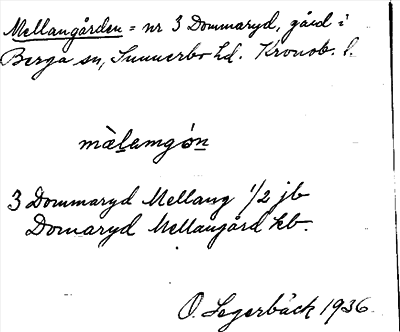 Mellangården = nr 3 Dommaryd, gård i
Berga sn, Sunnerbo hd. Kronob. l.
màlamgón
3 Dommaryd Mellang 1/2 jb
Domaryd Mellangård kb.
O. Segerbäck 1936